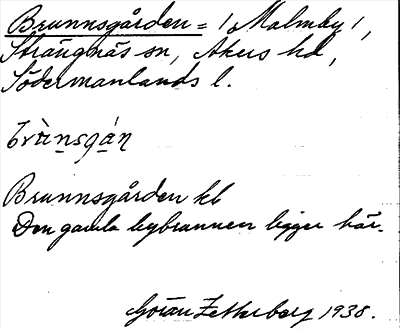 Brunnsgården = / Malmby /,
Strängnäs sn, Åkers hd,
Södermanlands l.
Brunnsgården kb
Den gamla bybrunnen ligger här.
Göran Zetterberg 1938.